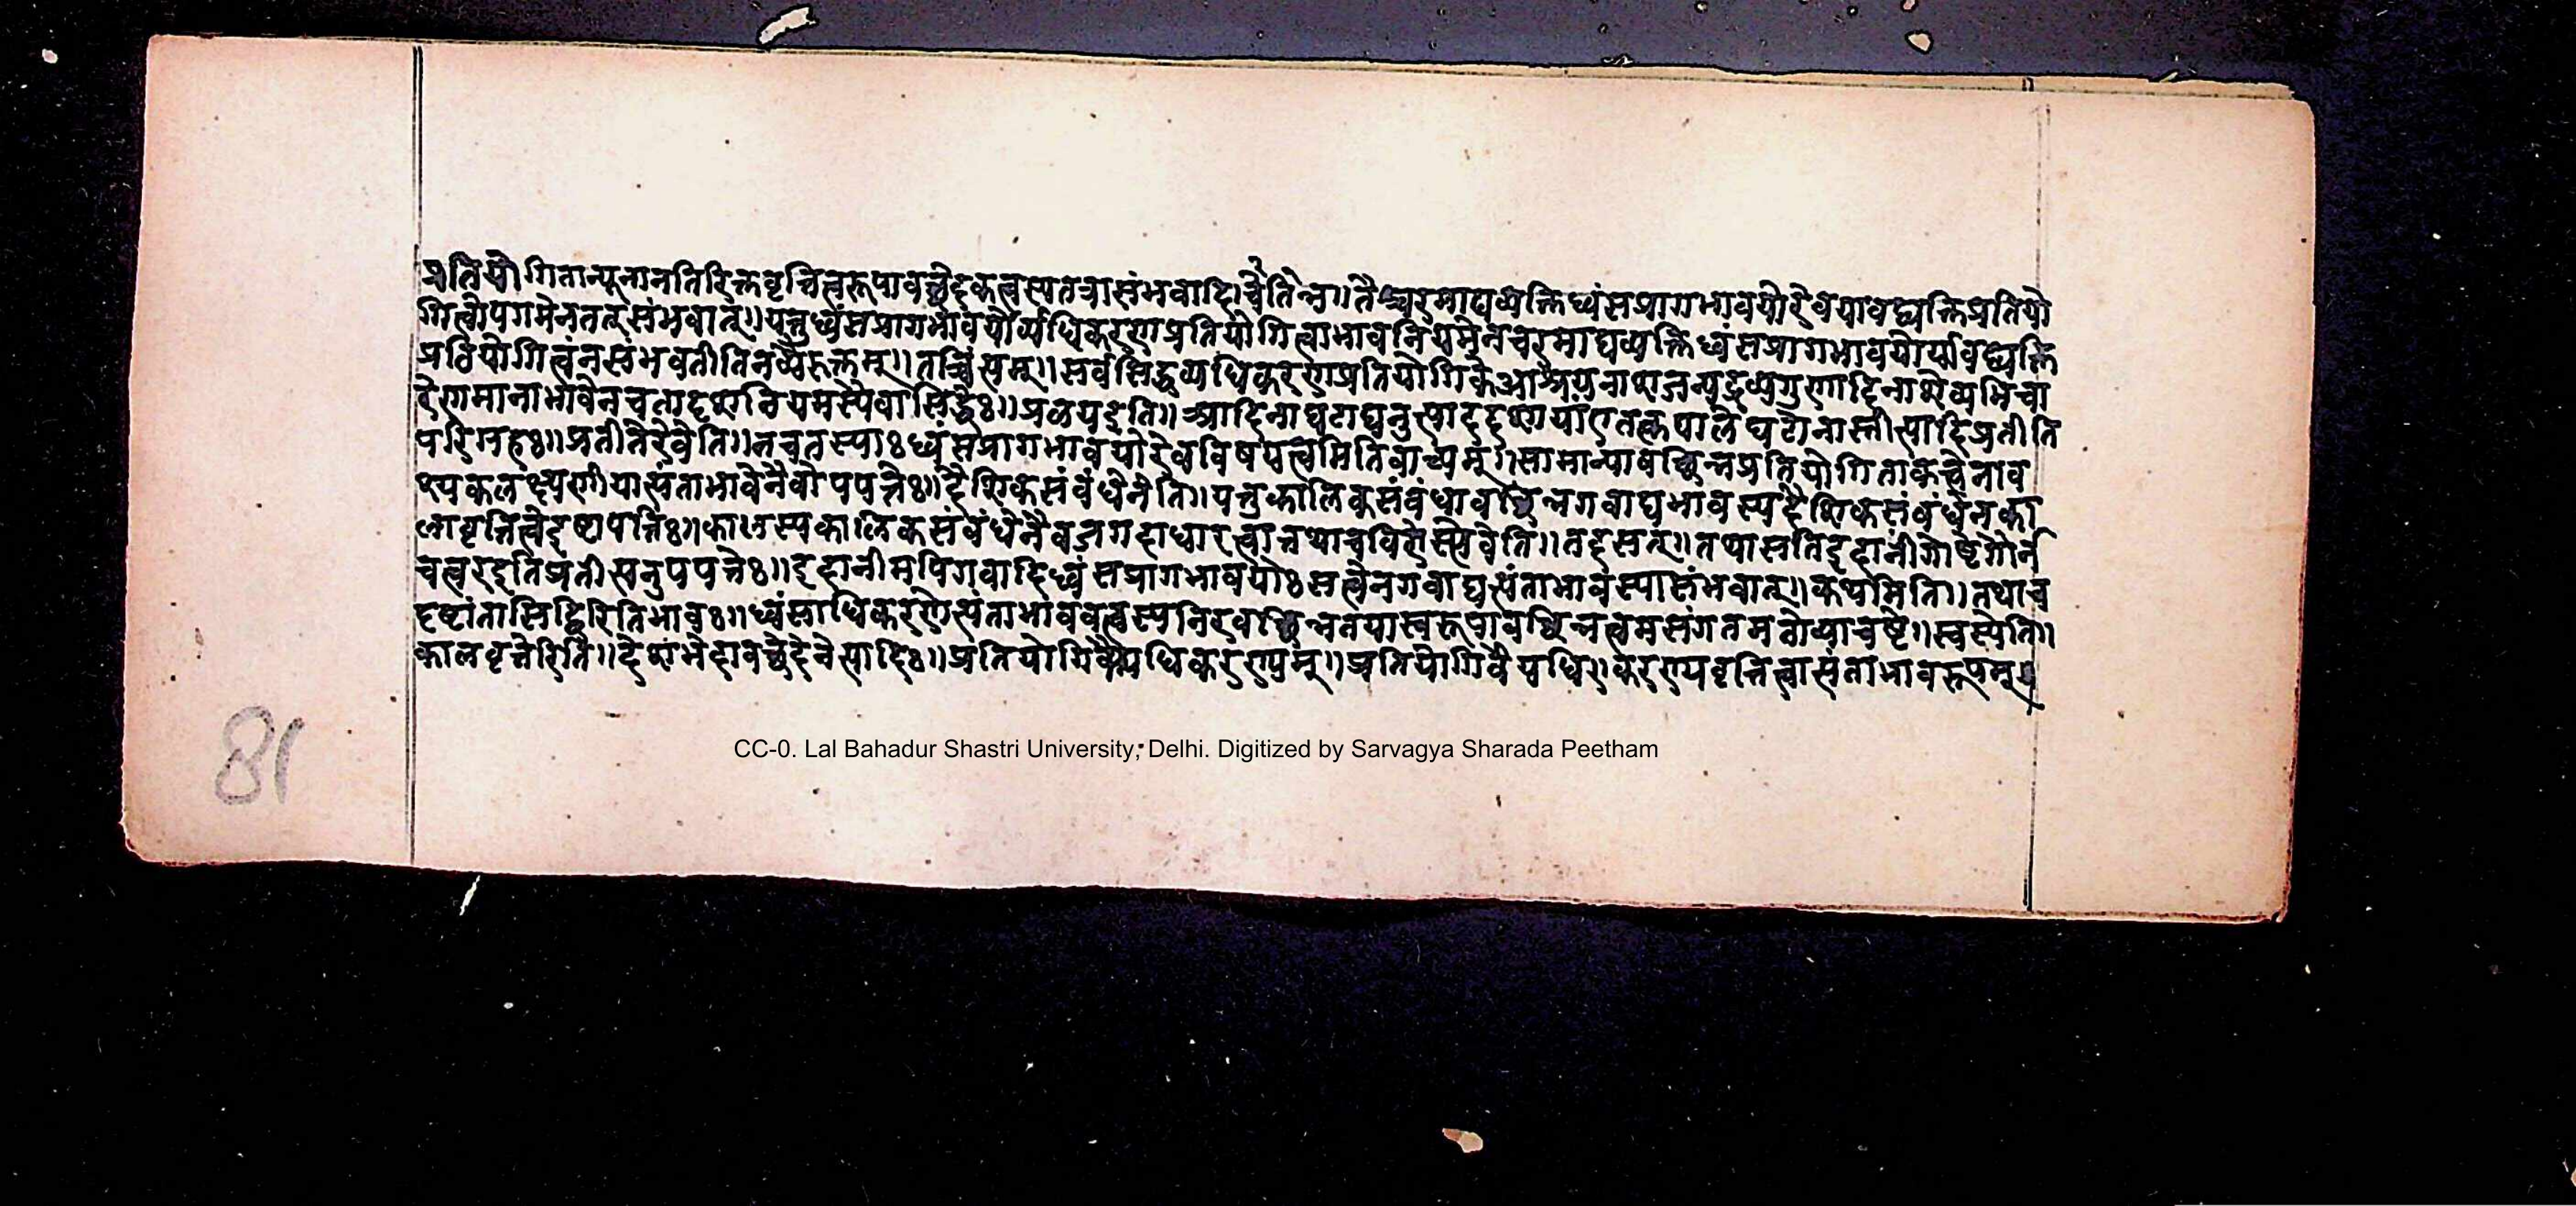 प्रतियोगितान्यूनानतिरिक्तवृत्तित्वरूपावच्छेदकत्वस्यतत्रासंभवादिाच्चेतिन्न।।तैश्चरमाद्यव्यक्तिध्वंसप्रागभावयोरेवयावद्व्यक्तिप्रतियो
गित्वोपगमेनतत्संभवात्।।यत्तुध्वंसप्रागभावयोर्व्यधिकरणप्रतियोगित्वाभावनियमेनचरमाद्यव्यक्तिध्वंसप्रागभावयोर्यावद्व्यक्ति
प्रतियोगित्वंनसंभवतीतिनव्यैरुक्तम्।।तच्चिंत्यम्।।सर्वसिद्धव्यधिकरणप्रतियोगिकेआश्रयनाशजन्यद्रव्यगुणादिनाशेव्यभिचा
रेणमानाभावेनचतादृशनियमस्यैवासिद्धेः।।प्रलयइति।।आदिनाघटाद्यनुत्पाददशायांएतत्कपालेघटोनास्तीत्यादिप्रतीति
परिग्रहः।।प्रतीतेरेवेति।।नचतस्याःध्वंसप्रागभावयोरेवविषयत्वमितिवाच्यम्।।सामान्यावच्छिन्नप्रतियोगिताकत्वेनाव
श्यकलक्ष्यणीयात्यंताभावेनैवोपपत्तेः।।दैशिकसंबंधेनेति।।यत्तुकालिकसंबंधावच्छिन्नगवाद्यभावस्यदैशिकसंबंधेनका
लावृत्तित्वेइष्टापत्तिः।।कालस्यकालिकसंबंधेनैवजगदाधारत्वात्तथाचविशेस्यैवेति।।तदसत्।।तथासतिइदानींगोष्ठेगौर्न
चत्वरइतिप्रतीत्यनुपपत्तेः।।इदानीमपिगवादिध्वंसप्रागभावयोःसत्वेनगवाद्यत्यंताभावस्यासंभवात्।।कथमिति।।तथाच
दृष्टांतासिद्धिरितिभावः।।ध्वंसाधिकरणेत्यंताभाववत्वस्यनिरवच्छिन्नतयास्वरूपावच्छिन्नत्वमसंगतमतोव्याचष्टे।।स्वस्येति।।
कालवृत्तेरिति।।देशभेदावच्छेदेनेत्यादिः।।प्रतियोगिवैयधिकरण्यम्।।प्रतियोगिवैयधिकरण्यवृत्तित्वात्यंताभावरूपम्
81
CC-0. Lal Bahadur Shastri University, Delhi. Digitized by Sarvagya Sharada Peetham